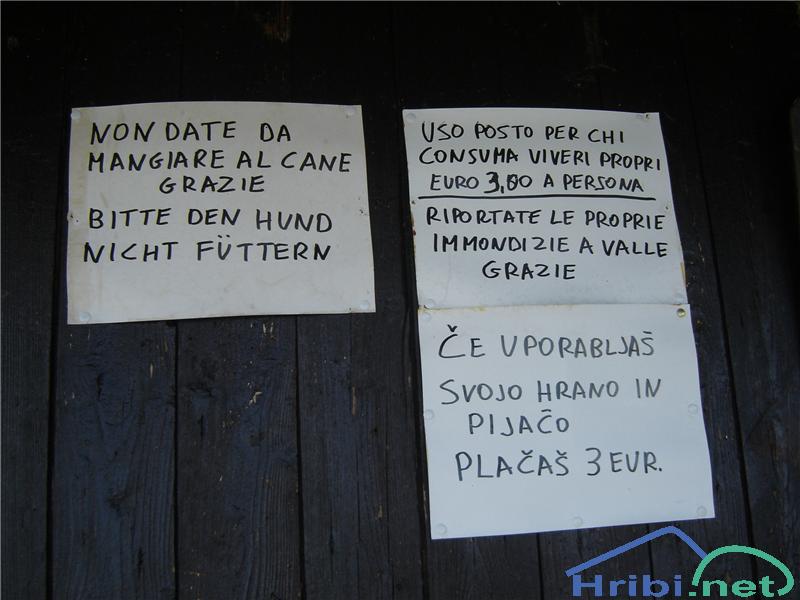 NON DATE DA
MANGIARE AL CANE
GRAZIE
BITTE DEN HUND
NICHT FÜTTERN
USO POSTO PER CHI
CONSUMA VIVERI PROPRI
EURO 3,00 A PERSONA
RIPORTATE LE PROPRIE
IMMONDIZIE A VALLE
GRAZIE
ČE UPORABLJAŠ
SVOJO HRANO IN
PIJAČO
PLAČAŠ 3 EUR.
Hribi.net